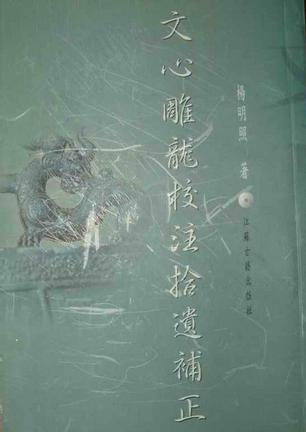 文心雕龍校注拾遺補正
楊明照 著
江蘇古籍出版社